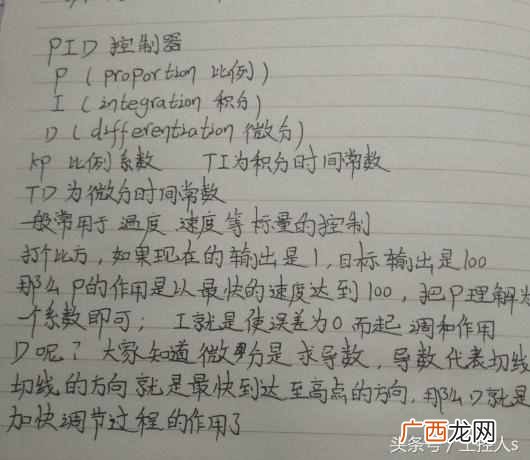 PID 控制器
P ( proportion 比例 )
I ( integration 积分 )
D ( differentiation 微分 )
KP 比例系数 TI为积分时间常数
TD 为微分时间常数
一般常用于 温度 速度等标量的控制
打个比方，如果现在的输出是1,目标输出是100
那么P的作用是以最快的速度达到100，把P理解为
个系数即可；I就是使误差为0而起调和作用
D呢？大家知道微分是求导数，导数代表切线
切线的方向就是最快到达至高点的方向，那么D就是
加快调节过程的作用了
头条号／工控人s
广西龙网